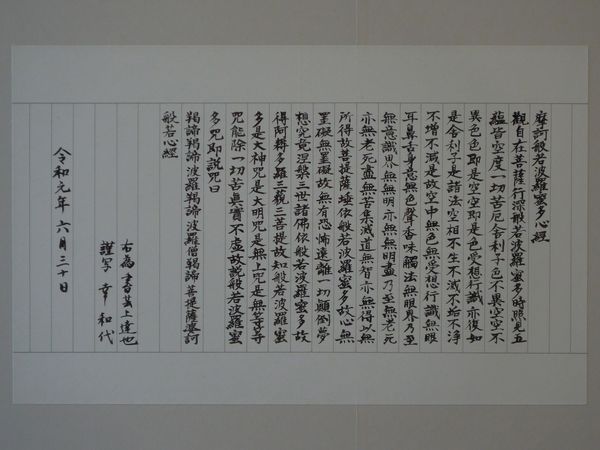 摩訶般若波羅蜜多心經
觀自在菩薩行深般若波羅蜜多時照見五
蘊皆空度一切苦厄舍利子色不異空空不
異色色即是空空即是色受想行識亦復如
是舍利子是諸法空相不生不滅不垢不淨
不增不減是故空中無色無受想行識無眼
耳鼻舌身意無色聲香味觸法無眼界乃至
無意識界無無明亦無無明盡乃至無老死
亦無老死盡無苦集滅道無智亦無得以無
所得故菩提薩埵依般若波羅蜜多故心無
罣礙無罣礙故無有恐怖遠離一切顛倒夢
想究竟涅槃三世諸佛依般若波羅蜜多故
得阿耨多羅三藐三菩提故知般若波羅蜜
多是大神咒是大明咒是無上咒是無等等
咒能除一切苦真實不虛故説般若波羅蜜
多咒即説咒曰
羯諦羯諦波羅羯諦波羅僧羯諦菩提薩婆訶
般若心經
右為 書芸上達也
謹写 幸 和代
令和元年 六月三十日